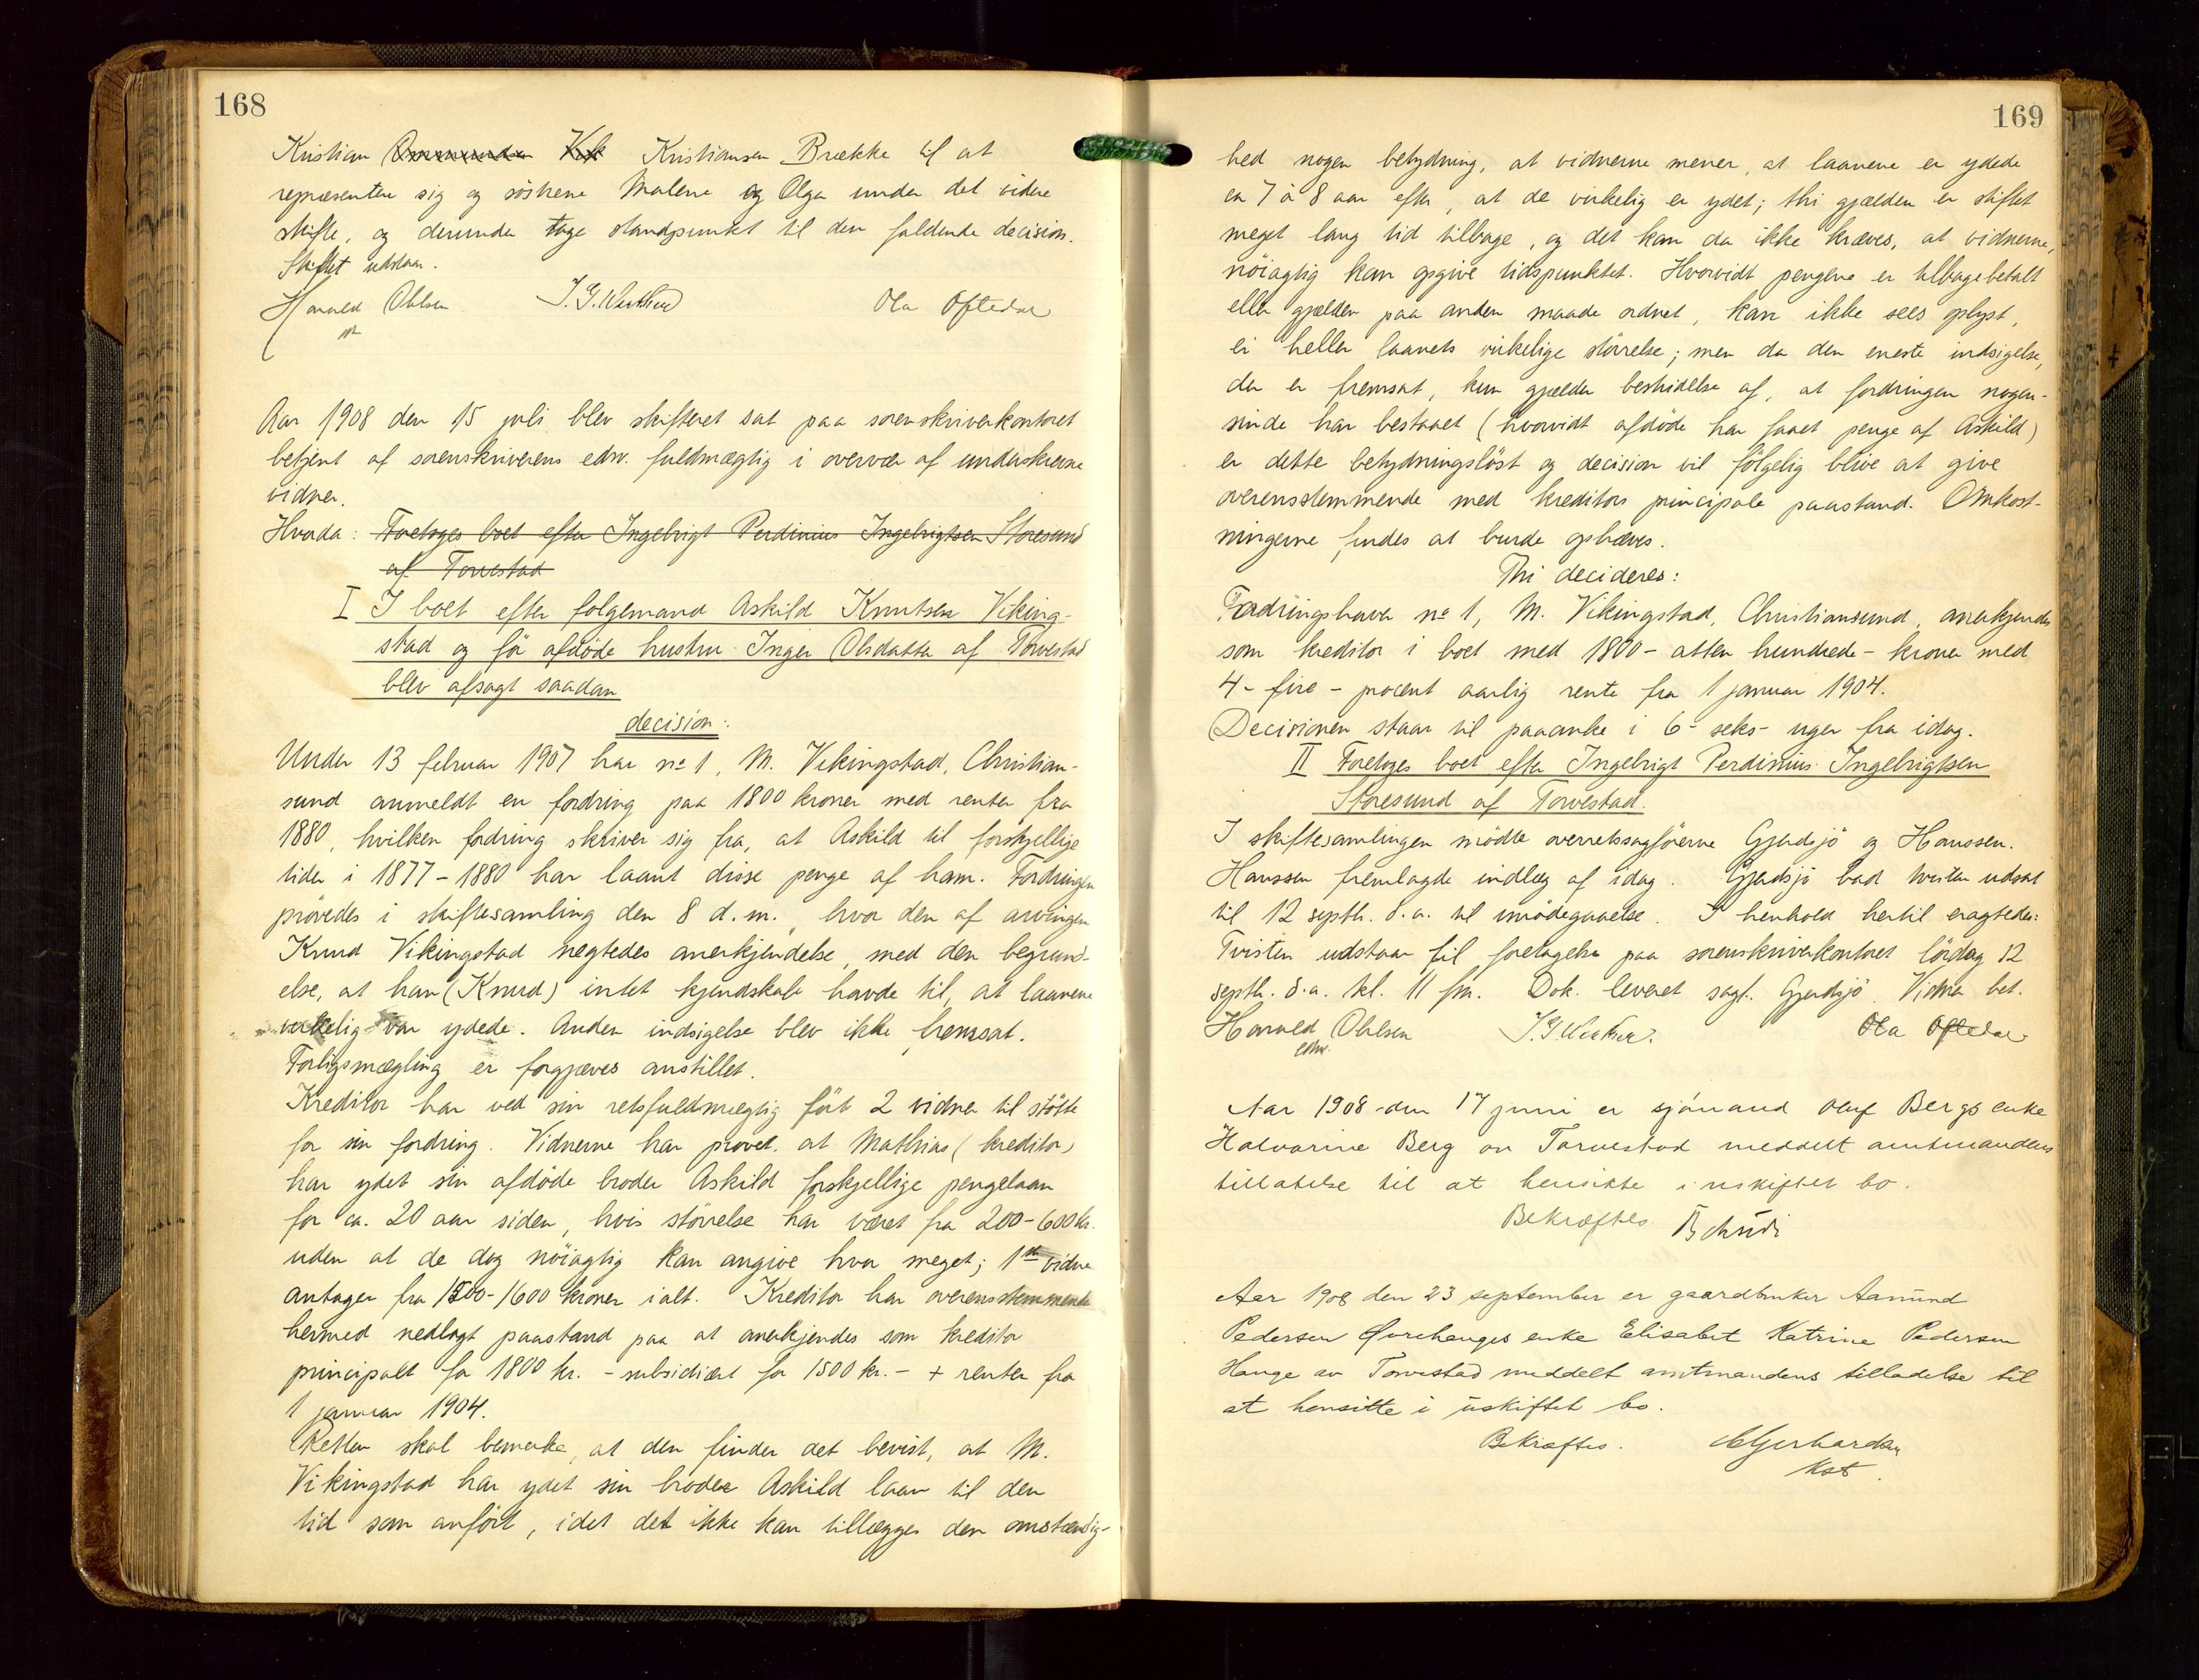 168
Kristian Kristiansen Brække til at
repræsentere sig og søstrene Malene og Olga under det videre
skifte, og derunder tage standpunkt til den faldende decision.
Skiftet udstaar.
Harald Ohlsen Ola Oftedal
Aar 1908 den 15 juli blev skifteret sat paa sorenskriverkontoret
betjent af sorenskriverens edsv. fuldmægtig i overvær af underskrevne
vidner.
Hvorda: Foretoges boet efter Ingebrigt Perdinius Ingebrigtsen Storesund
af Torvestad
I I boet efter følgemand Askild Knutsen Viking-
stad og før afdøde hustru Inger Olsdatter af Torvestad
blev afsagt saadan
decision:
Under 13 februar 1907 har no 1, M. Vikingstad, Christian-
sund anmeldt en fordring paa 1800 kroner med renter fra
1880, hvilken fordring skriver sig fra, at Askild til forskjellige
tider i 1877-1880 har laant disse penge af ham. Fordringen
prøvedes i skiftesamling den 8 d.m., hvor den af arvingen
Knud Vikingstad negtedes anerkjendelse, med den begrund-
else, at han (Knud) intet kjendskab havde til, at laanene
virkelig var ydede. Anden indsigelse blev ikke fremsat.
Forligsmægling er forgjæves anstillet.
Kreditor har ved sin retsfuldmægtig ført 2 vidner til støtte
for sin fordring. Vidnerne har prøvet at Mathias (kreditor)
har ydet sin afdøde broder Askild forskjellige pengelaan
for ca. 20 aar siden, hvis størrelse har været fra 200-600 kr.
uden at de dog nøiagtig kan angive hvor meget; 1ste vidne
antager fra 1500-1600 kroner ialt. Kreditor har overensstemmende
hermed nedlagt paastand paa at anerkjendes som kreditor
principalt for 1800 kr. - subsidiært for 1500 kr. - + renter fra
1 januar 1904.
Retten skal bemerke, at den finder det bevist, at M.
Vikingstad har ydet sin broder Askild laan til den
tid som anført, idet det ikke kan tillægges den omstændig-
169
hed nogen betydning, at vidnerne mener, at laanene er ydede
ca 7 à 8 aar efter, at de virkelig er ydet; thi gjælden er stiftet
meget lang tid tilbage, og det kan da ikke kræves, at vidnerne,
nøiagtig kan opgive tidspunktet. Hvorvidt pengene er tilbagebetalt
eller gjælden paa anden maade ordnet, kan ikke sees oplyst,
ei heller laanets virkelige størrelse; men da den eneste indsigelse,
der er fremsat, kun gjælder bestridelse af, at fordringen nogen-
sinde har bestaaet (hvorvidt afdøde har faaet penge af Askild)
er dette betydningsløst og decision vil følgelig blive at give
overensstemmende med kreditors principale paastand. Omkost-
ningerne findes at burde ophæves.
Thi decideres:
Fordringshaver no 1, M. Vikingstad, Christiansund, anerkjendes
som kreditor i boet med 1800 - atten hundrede - kroner med
4 - fire - procent aarlig rente fra 1 januar 1904.
Decisionen staar til paaanke i 6 - seks - uger fra idag.
II Foretoges boet efter Ingebrigt Perdinius Ingebrigtsen
Storesund af Torvestad.
I skiftesamlingen mødte overretssagførerne Gjerdsjø og Hanssen.
Hanssen fremlagde indlæg af idag. Gjerdsjø bad tvisten udsat
til 12 septbr. d.a. til imødegaaelse. I henhold hertil eragtedes:
Tvisten udstaar til foretagelse paa sorenskriverkontoret lørdag 12
septbr. d.a. kl. 11 fm. Dok. leveret sagf. Gjerdsjø. Vidner bet.
Harald Ohlsen Ola Oftedal
edsv.
Aar 1908 den 17 juni er sjømand Oluf Bergs enke
Halvarine Berg av Torvestad meddelt amtmandens
tilladelse til at hensitte i uskiftet bo.
Bekræftes
Aar 1908 den 23 september er gaardbruker Aamund
Pedersen enke Elisabet Katrine Pedersen
Hauge av Torvestad meddelt amtmandens tilladelse til
at hensitte i uskiftet bo.
Bekræftes.
kst.